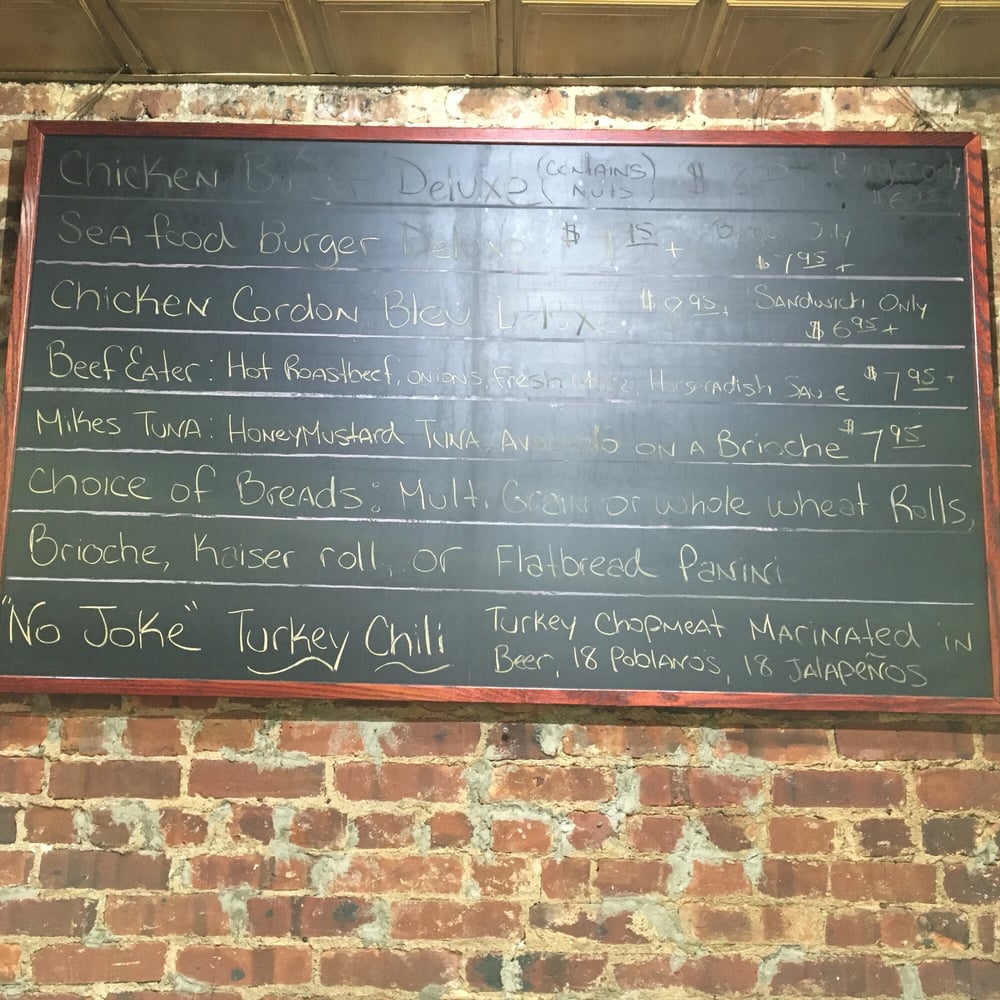 Chicken Burger Deluxe (Contains Nuts) $ Burger only
Seafood Burger Deluxe $ 9.15 + Burger Only $7.95 +
Chicken Cordon Bleu Deluxe $8.95+ Sandwich Only $6.95 +
Beef Eater: Hot Roastbeef, onions, Fresh Mozz Horseradish Sauce $7.95 +
Mikes Tuna: HoneyMustard Tuna, Avocado on a Brioche $7.95
Choice of Breads: Multi Grain or whole wheat Rolls,
Brioche, Kaiser roll, or Flatbread Panini
"No Joke" Turkey Chili Turkey Chopmeat Marinated in
Beer, 18 Poblanos, 18 Jalapeños